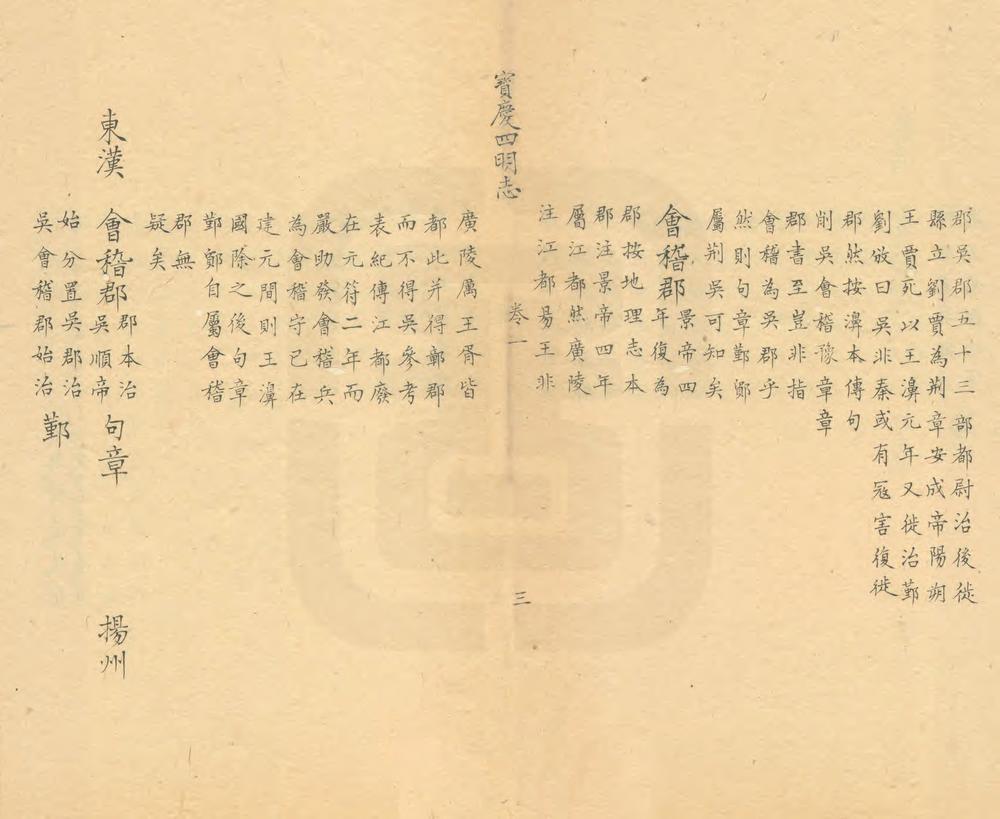 郡吳郡五十三 部都尉治後徙
縣立劉賈為荆 章安成帝陽朔
王賈死以王濞 元年又徙治鄞
劉攽曰吳非秦 或有冦害復徙
郡然按濞本傳 句
削吳會稽豫章 章
郡書至豈非指
會稽為吳郡乎
然則句章鄞鄮
屬荆吳可知矣
會稽郡 景帝四年復為
郡按地理志本
郡注景帝四年
屬江都然廣陵
注江都易王非
寶慶四明志 卷一 三
廣陵厲王胥皆
都此并得鄣郡
而不得吳參考
表紀傳江都廢
在元符二年而
嚴助發會稽兵
為會稽守已在
建元間則王濞
國除之後句章
鄞鄮自屬會稽
郡無
疑矣
東漢 會稽郡 郡本治吳順帝 句章 揚州
始分置吳郡治
吳會稽郡始治 鄞